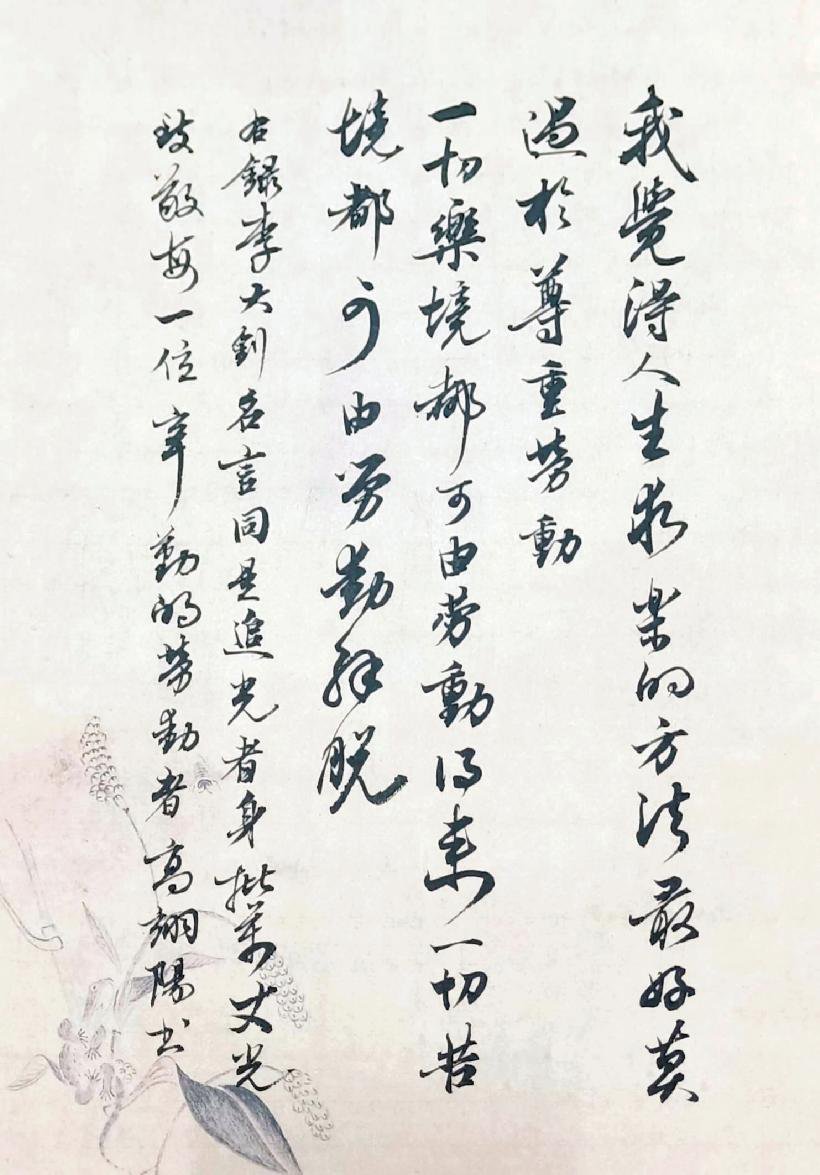 我覺得人生求樂的方法最好莫
過於尊重勞動
一切樂境都可由勞動得來一切苦
境都可由勞動解脫
右錄李大釗名言同是追光者身批萬丈光
致敬每一位辛勤的勞動者高翊陽书